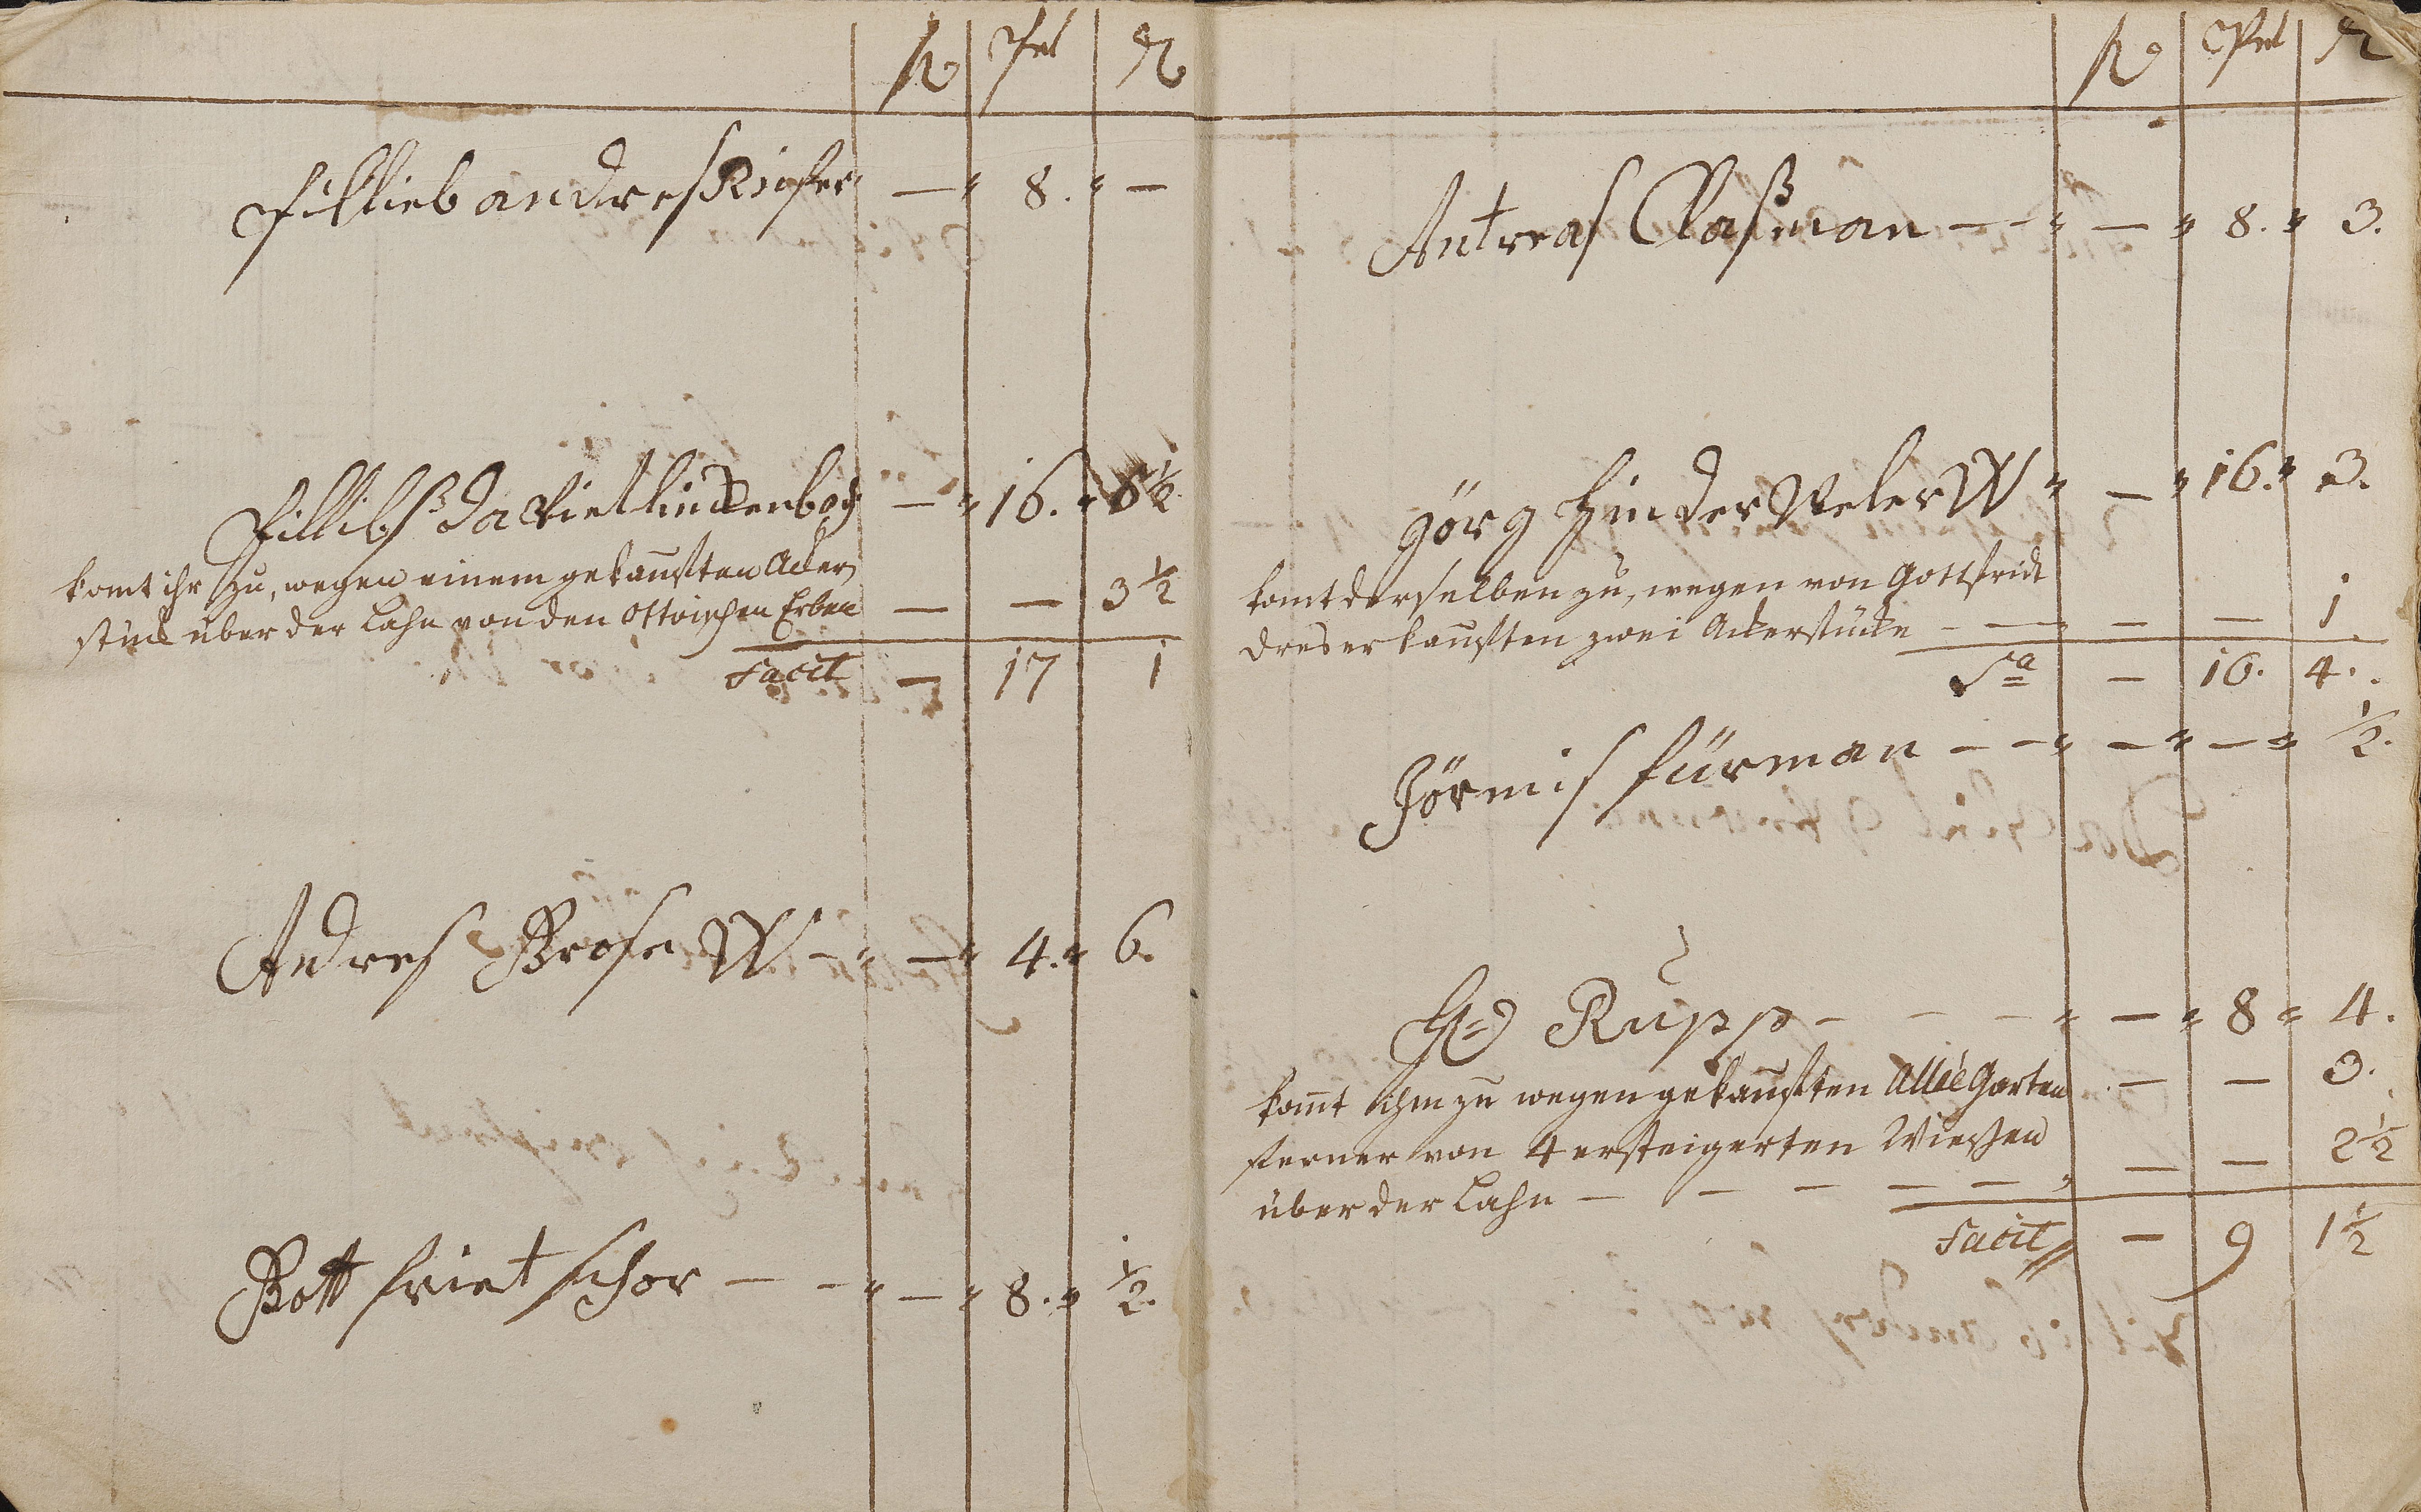 fl Xel d
Fillieb andres Kiefer — 8. —
Fillibs da Viet linckenboch — 16. 5½
komt ihr zu, wegen einem gekauften Acker
stück über der Lahn von den Ottoischen Erben — — 3½
Facit — 17 1
Andres Brose W — — 4. 6.
Gott friet schor — — — 8. ½.
fl Xel d
Antreas Claßman — — — 8. 3.
görg hinder Veler W — 16. 3.
komt derselben zu, wegen von Gottfridt
dreser kauften zwei Ackerstücke — — — — 1
Sa — 16. 4.
Jörmis fürman — — — — ½.
Rupp — — — — 8 4.
komt ihm zu wegen gekauften Allee Garten — — 3.
ferner von 4 ersteigerten Wiesen — — 2½
über der Lahn — — — — —
Facit — 9 1½